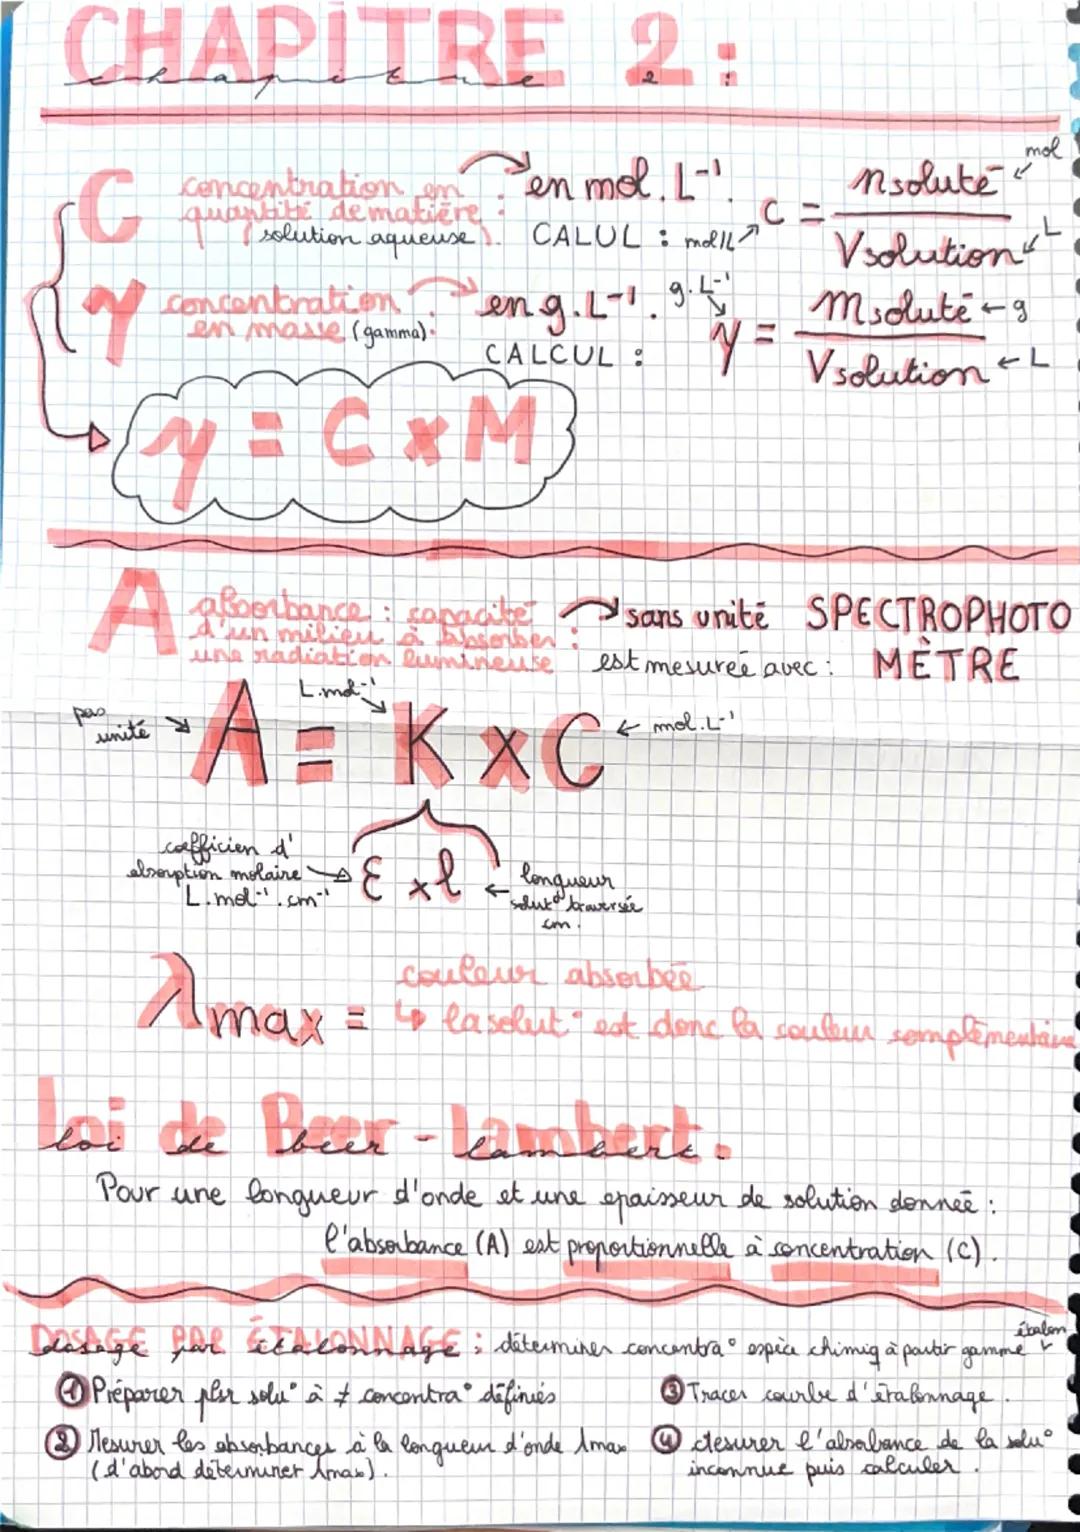 CHAPITRE 2 :
chapitre 2 :
C concentration en quantité de matière : en mol.L⁻¹.
solution aqueuse
CALUL : mol/L C = nsoluté / Vsolution
mol
L
γ concentration en masse (gamma) : en g.L⁻¹.
CALCUL : g.L⁻¹ γ = msoluté / Vsolution
g
L
γ = C × M
A absorbance : capacité d'un milieu à absorber une radiation lumineuse : sans unité
est mesurée avec : SPECTROPHOTO
MÈTRE
pas unité A = K × C
L.mol⁻¹
mol.L⁻¹
coefficien d'
absorption molaire
L.mol⁻¹.cm⁻¹
ε × l
longueur
solut° traversée
cm.
λmax = couleur absorbée
↳ la solut° est donc la couleur complémentaire
Loi de Beer - Lambert.
loi de beer - lambert.
Pour une longueur d'onde et une epaisseur de solution donnée :
l'absorbance (A) est proportionnelle à concentration (C).
DOSAGE PAR ÉTALONNAGE :
dosage par étalonnage : déterminer concentra° espèce chimiq à partir gamme étalon
① Préparer plsr solu° à ≠ concentra° définiés
② Mesurer les absorbances à la longueur d'onde λmax
(d'abord déterminer λmax).
③ Tracer courbe d'étalonnage.
④ Mesurer l'absorbance de la solu°
inconnue puis calculer.